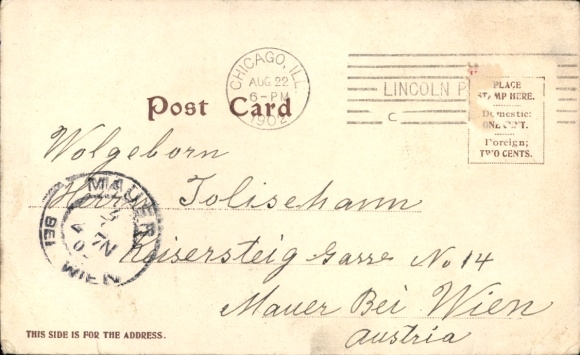 CHICAGO, ILL.
AUG 22
6-PM
1902
LINCOLN P
C
PLACE
STAMP HERE.
Domestic:
ONE CENT.
Foreign;
TWO CENTS.
Post Card
Wolgeborn
Herrn Tolischann
Kaisersteig Gasse No 14
Mauer Bei Wien
Austria
MAUER
BEI WIEN
THIS SIDE IS FOR THE ADDRESS.